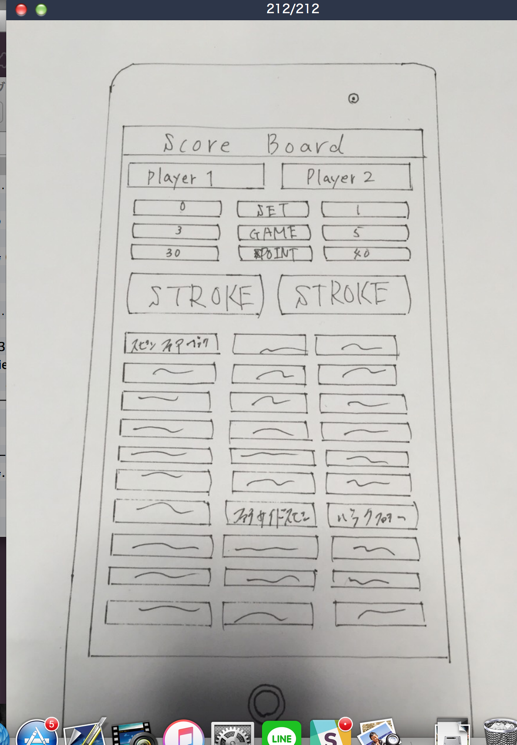 212/212
Score Board
Player 1 Player 2
0 SET 1
3 GAME 5
30 POINT 40
STROKE STROKE
スピン
フォアサイドスピン バックフォアー
5
LINE